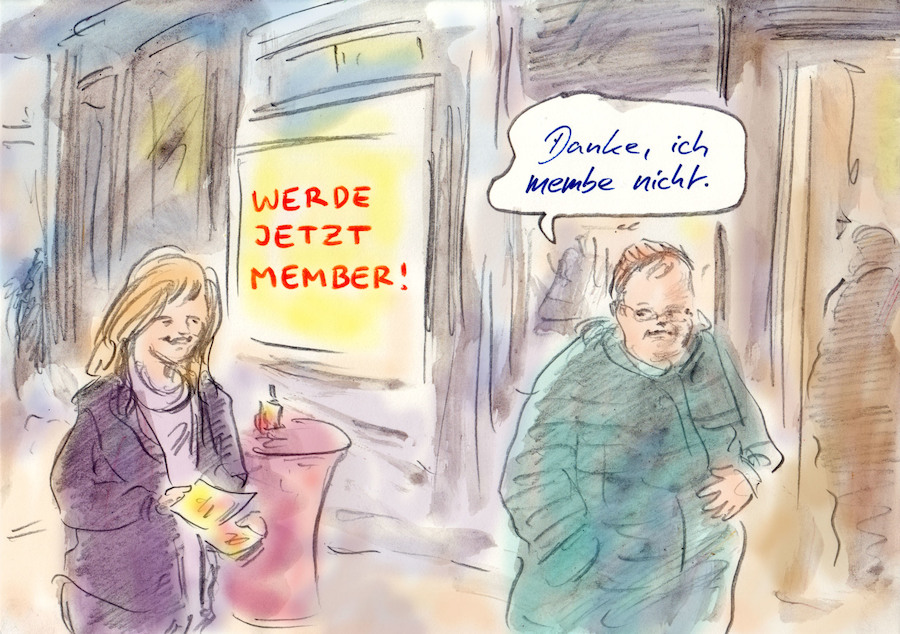 WERDE
JETZT
MEMBER!
Danke, ich
membe nicht.